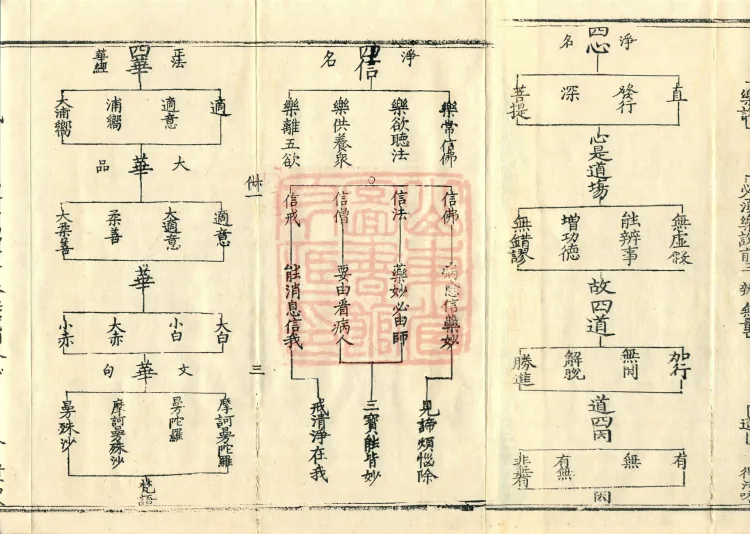 淨
四心
名
直
發行
深
菩提
心是道場
無虛假
能辨事
增功德
無錯謬
故四道
加行
無間
解脫
勝進
道四門
有
無
有無
門
淨
四信
名
樂常信佛
樂欲聽法
樂供養眾
樂離五欲
信佛
信法
信僧
信戒
病愈信藥妙
藥妙必由師
要由看病人
能消息信我
見諦煩惱除
三寶能皆妙
戒清淨在我
三
正法
四華
華經
適
適意
浦嚮
大浦嚮
大
華
品
適意
大適意
柔善
大柔善
華
大白
小白
大赤
小赤
文
華
句
摩訶曼陀羅
曼陀羅
摩訶曼殊沙
曼殊沙
梵語